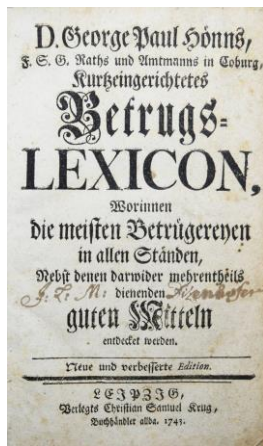 D. George Paul Hönns,
F. S. G. Raths und Amtmanns in Coburg,
Kurtzeingerichtetes
Betrugs-
LEXICON,
Worinnen
die meisten Betrügereyen
in allen Ständen,
Nebst denen darwider mehrentheils
J. L. M: dienenden
guten Mitteln
entdecket werden.
Neue und verbesserte Edition.
LEIPZIG,
Verlegts Christian Samuel Krug,
Buchhändler allda. 1743.